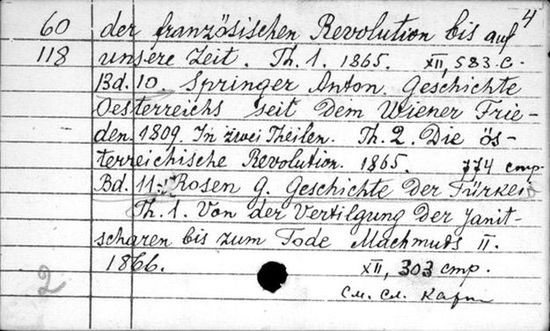 4
60 der französischen Revolution bis auf
118 unsere Zeit. Th. 1. 1865. XII, 583 c.
Bd. 10. Springer Anton. Geschichte
Oesterreichs seit Dem Wiener Frie-
den. 1809. In zwei Theilen. Th. 2. Die ös-
terreichische Revolution. 1865. 774 cmp.
Bd. 11. Rosen G. Geschichte Der Türkei
Th. 1. Von der Vertilgung Der Janit-
scharen bis zum Tode Machmuds II.
1866. XII, 303 cmp.
2 См. сл. карт